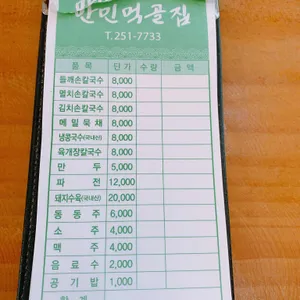 만민먹골집
T.251-7733
품목 단가 수량 금액
들깨손칼국수 8,000
멸치손칼국수 8,000
김치손칼국수 8,000
메밀묵채 8,000
냉콩국수(국내산) 8,000
육개장칼국수 8,000
만두 5,000
파전 12,000
돼지수육(국내산) 20,000
동동주 6,000
소주 4,000
맥주 4,000
음료수 2,000
공기밥 1,000
합계